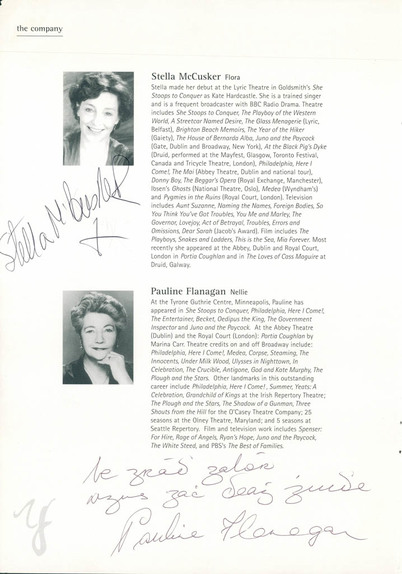 the company
Stella McCusker Flora
Stella made her debut at the Lyric Theatre in Goldsmith's She
Stoops to Conquer as Kate Hardcastle. She is a trained singer
and is a frequent broadcaster with BBC Radio Drama. Theatre
includes She Stoops to Conquer, The Playboy of the Western
World, A Streetcar Named Desire, The Glass Menagerie (Lyric,
Belfast), Brighton Beach Memoirs, The Year of the Hiker
(Gaiety), The House of Bernarda Alba, Juno and the Paycock
(Gate, Dublin and Broadway, New York), At the Black Pig's Dyke
(Druid, performed at the Mayfest, Glasgow, Toronto Festival,
Canada and Tricycle Theatre, London), Philadelphia, Here I
Come!, The Mai (Abbey Theatre, Dublin and national tour),
Donny Boy, The Beggar's Opera (Royal Exchange, Manchester),
Ibsen's Ghosts (National Theatre, Oslo), Medea (Wyndham's)
and Pygmies in the Ruins (Royal Court, London). Television
includes Aunt Suzanne, Naming the Names, Foreign Bodies, So
You Think You've Got Troubles, You Me and Marley, The
Governor, Lovejoy, Act of Betrayal, Troubles, Errors and
Omissions, Dear Sarah (Jacob's Award). Film includes The
Playboys, Snakes and Ladders, This is the Sea, Mia Forever. Most
recently she appeared at the Abbey, Dublin and Royal Court,
London in Portia Coughlan and in The Loves of Cass Maguire at
Druid, Galway.
Stella McCusker
Pauline Flanagan Nellie
At the Tyrone Guthrie Centre, Minneapolis, Pauline has
appeared in She Stoops to Conquer, Philadelphia, Here I Come!,
The Entertainer, Becket, Oedipus the King, The Government
Inspector and Juno and the Paycock. At the Abbey Theatre
(Dublin) and the Royal Court (London): Portia Coughlan by
Marina Carr. Theatre credits on and off Broadway include:
Philadelphia, Here I Come!, Medea, Corpse, Steaming, The
Innocents, Under Milk Wood, Ulysses in Nighttown, In
Celebration, The Crucible, Antigone, God and Kate Murphy, The
Plough and the Stars. Other landmarks in this outstanding
career include Philadelphia, Here I Come!, Summer, Yeats: A
Celebration, Grandchild of Kings at the Irish Repertory Theatre;
The Plough and the Stars, The Shadow of a Gunman, Three
Shouts from the Hill for the O'Casey Theatre Company; 25
seasons at the Olney Theatre, Maryland; and 5 seasons at
Seattle Repertory. Film and television work includes Spenser:
For Hire, Rage of Angels, Ryan's Hope, Juno and the Paycock,
The White Steed, and PBS's The Best of Families.
Pauline Flanagan